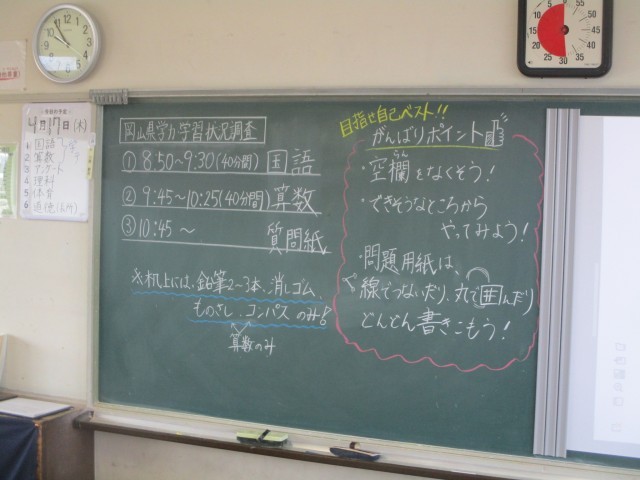 4月17日(木)
1 国語
2 算数
3 アンケート
4 理科
5 体育
6 道徳
岡山県学力学習状況調査
① 8:50～9:30(40分間) 国語
② 9:45～10:25(40分間) 算数
③ 10:45～ 質問紙
※机上には、鉛筆2～3本、消しゴム、
ものさし、コンパス のみ!
算数のみ
目指せ自己ベスト!!
がんばりポイント
・空欄をなくそう!
らん
・できそうなところから
やってみよう!
・問題用紙は、
線でつないだり、丸で囲んだり
どんどん書きこもう!
12 1 2 3 4 5 6 7 8 9 10 11
0 55 50 45 40 35 30 25 20 15 10 5